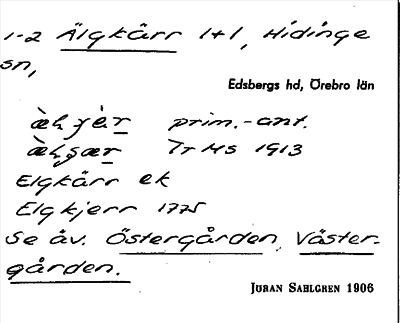 1-2 Älgkärr 1+1, Hidinge
sn,
Edsbergs hd, Örebro län
prim.-ant.
1913
Elgkärr ek
Elgkjerr 1775
Se äv. Östergården, Väster-
gården.
JÖRAN SAHLGREN 1906